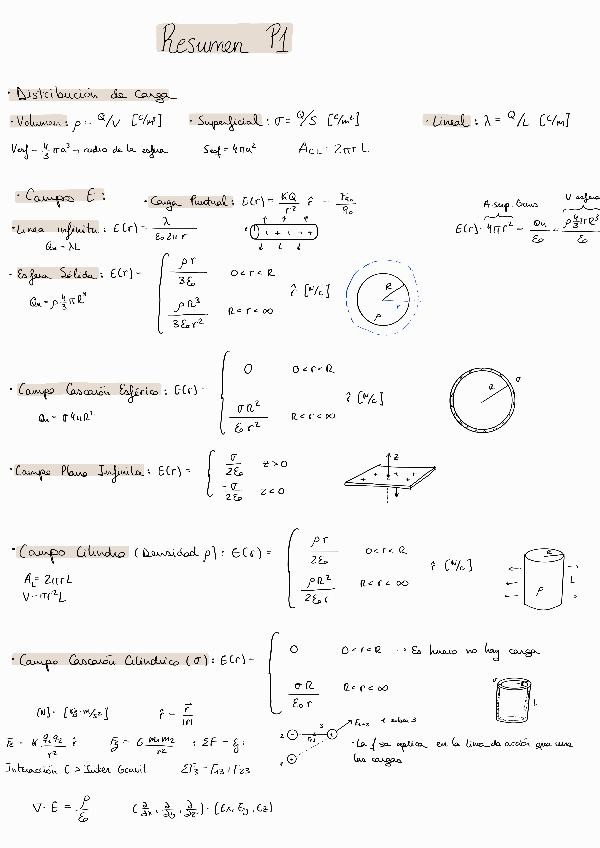 Resumen P1
· Distribución de Carga
· Volumen: ρ = Q/V [C/m³] · Superficial: σ = Q/S [C/m²] · Lineal: λ = Q/L [C/m]
Vesf = 4/3 πa³ → radio de la esfera Sesf = 4πa² ACL: 2πr L
· Campo E: · Carga Puntual: E(r) = KQ/r² r̂ = /q₀ A sup. Gauss V esfera
· Linea infinita: E(r) = λ/ε₀2πr E(r) · 4πr² = Qn/ε₀ = ρ 4/3 πR³/ε₀
Qn = λL
· Esfera Sólida: E(r) = { ρr/3ε₀ 0<r<R
ρR³/3ε₀r² R<r<∞ r̂ [N/C] R r ρ
Qn = ρ 4/3 πR³
· Campo Cascarón Esférico: E(r) = { 0 0<r<R
σR²/ε₀r² R<r<∞ r̂ [N/C] R σ
Qn = σ4πR²
· Campo Plano Infinito: E(r) = { σ/2ε₀ z>0
-σ/2ε₀ z<0 z
· Campo Cilindro (Densidad ρ): E(r) = { ρr/2ε₀ 0<r<R
ρR²/2ε₀r R<r<∞ r̂ [N/C] ρ L
AL = 2πrL
V = πr²L
· Campo Cascarón Cilindrico (σ): E(r) = { 0 0<r<R → Es hueco no hay carga
σR/ε₀r R<r<∞ σ L
[N] = [Kg·m/s²] r̂ = r⃗/|r|
Fe = K q₁q₂/r² r̂ Fg = G m₁m₂/r² : ΣF =
Interacción E > Inter Gravit ΣF₃ = F₁₃ + F₂₃
· La f se aplica en la linea de acción que une
las cargas
∇·E = ρ/ε₀ (∂/∂x, ∂/∂y, ∂/∂z) · (Ex, Ey, Ez)